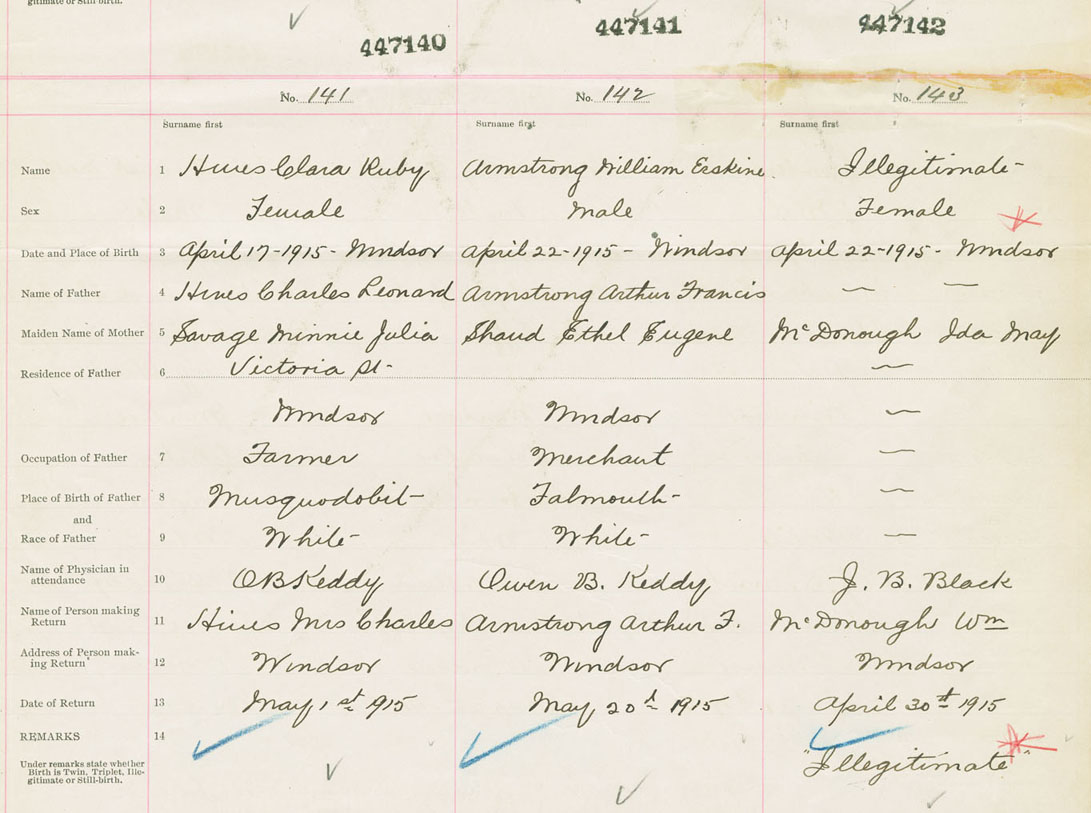 gitimate or Still-birth.
447140 447141 447142
No. 141 No. 142 No. 143
Surname first Surname first Surname first
Name 1 Hines Clara Ruby Armstrong William Erskine Illegitimate-
Sex 2 Female Male Female
Date and Place of Birth 3 April 17-1915- Windsor April 22-1915- Windsor April 22-1915- Windsor
Name of Father 4 Hines Charles Leonard Armstrong Arthur Francis — —
Maiden Name of Mother 5 Savage Minnie Julia Shand Ethel Eugene McDonough Ida May
Residence of Father 6 Victoria St- —
Windsor Windsor —
Occupation of Father 7 Farmer Merchant —
Place of Birth of Father 8 Musquodobit- Falmouth- —
and
Race of Father 9 White- White- —
Name of Physician in
attendance 10 OB Keddy Owen B. Keddy J. B. Black
Name of Person making
Return 11 Hines Mrs Charles Armstrong Arthur F. McDonough Wm
Address of Person mak-
ing Return 12 Windsor Windsor Windsor
Date of Return 13 May 1st 1915 May 20th 1915 April 30th 1915
REMARKS 14
Under remarks state whether
Birth is Twin, Triplet, Ille-
gitimate or Still-birth.
"Illegitimate"